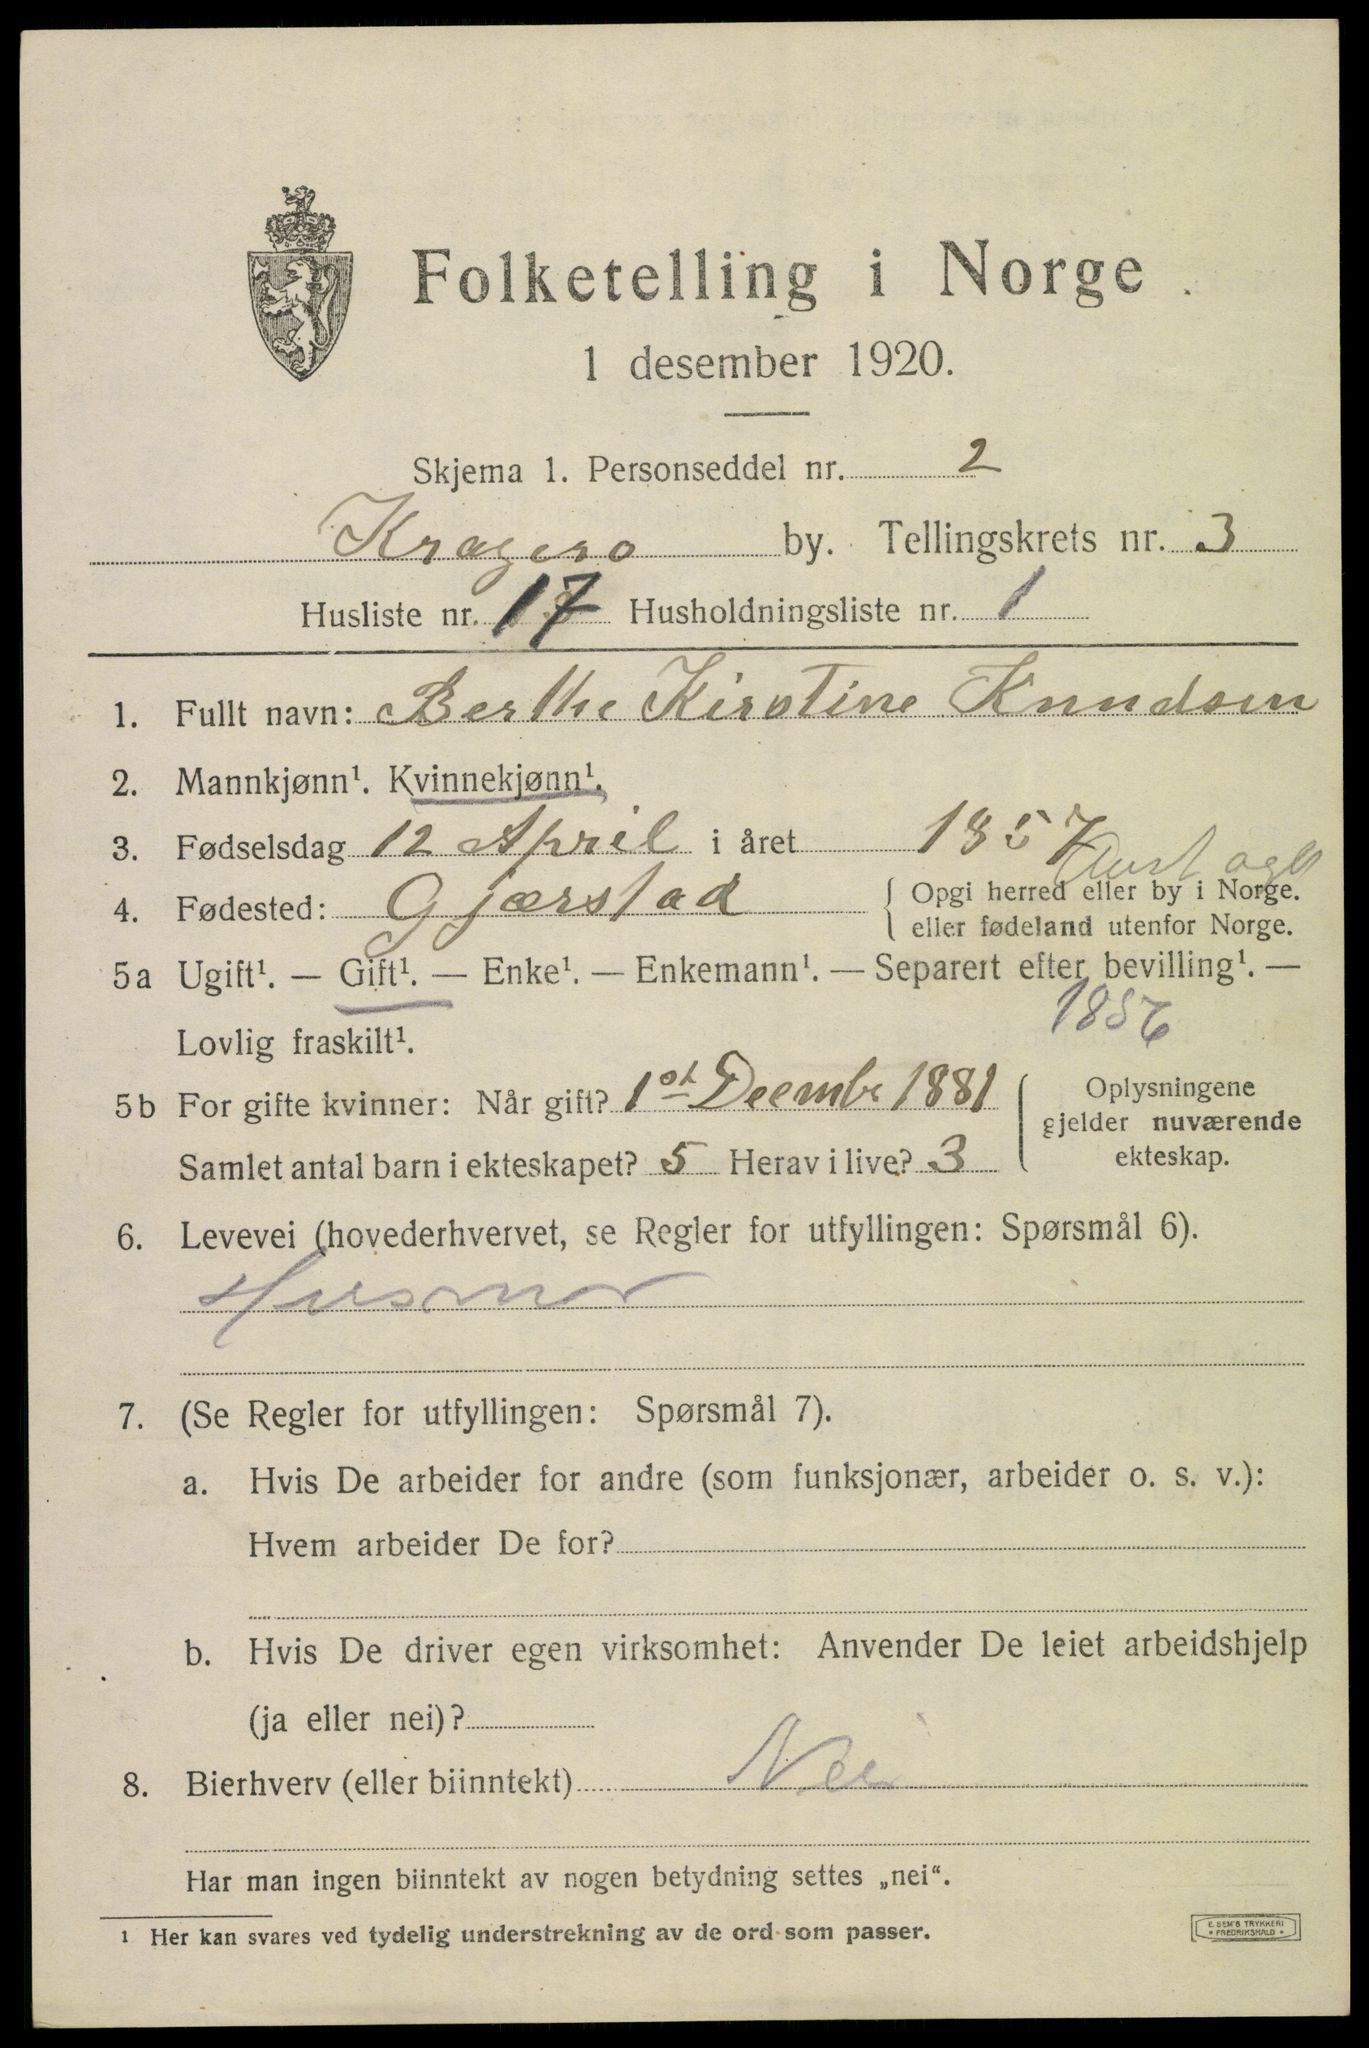 Folketelling i Norge
1 desember 1920.
Skjema 1. Personseddel nr. 2
Kragerø by. Tellingskrets nr. 3
Husliste nr. 17 Husholdningsliste nr. 1
1. Fullt navn: Berthe Kirstine Knudsen
2. Mannkjønn¹. Kvinnekjønn¹.
3. Fødselsdag 12 April i året 1857
Aust agd
4. Fødested: Gjærstad { Opgi herred eller by i Norge.
eller fødeland utenfor Norge.
5a Ugift¹. — Gift¹. — Enke¹. — Enkemann¹. — Separert efter bevilling¹. —
Lovlig fraskilt¹. 1856
5b For gifte kvinner: Når gift? 1st Decembr 1881
Samlet antal barn i ekteskapet? 5 Herav i live? 3
Oplysningene
gjelder nuværende
ekteskap.
6. Levevei (hovederhvervet, se Regler for utfyllingen: Spørsmål 6).
Husmor
7. (Se Regler for utfyllingen: Spørsmål 7).
a. Hvis De arbeider for andre (som funksjonær, arbeider o. s. v.):
Hvem arbeider De for?
b. Hvis De driver egen virksomhet: Anvender De leiet arbeidshjelp
(ja eller nei)?
8. Bierhverv (eller biinntekt) Nei
Har man ingen biinntekt av nogen betydning settes „nei“.
¹ Her kan svares ved tydelig understrekning av de ord som passer.
E. SEM'S TRYKKERI
FREDRIKSHALD